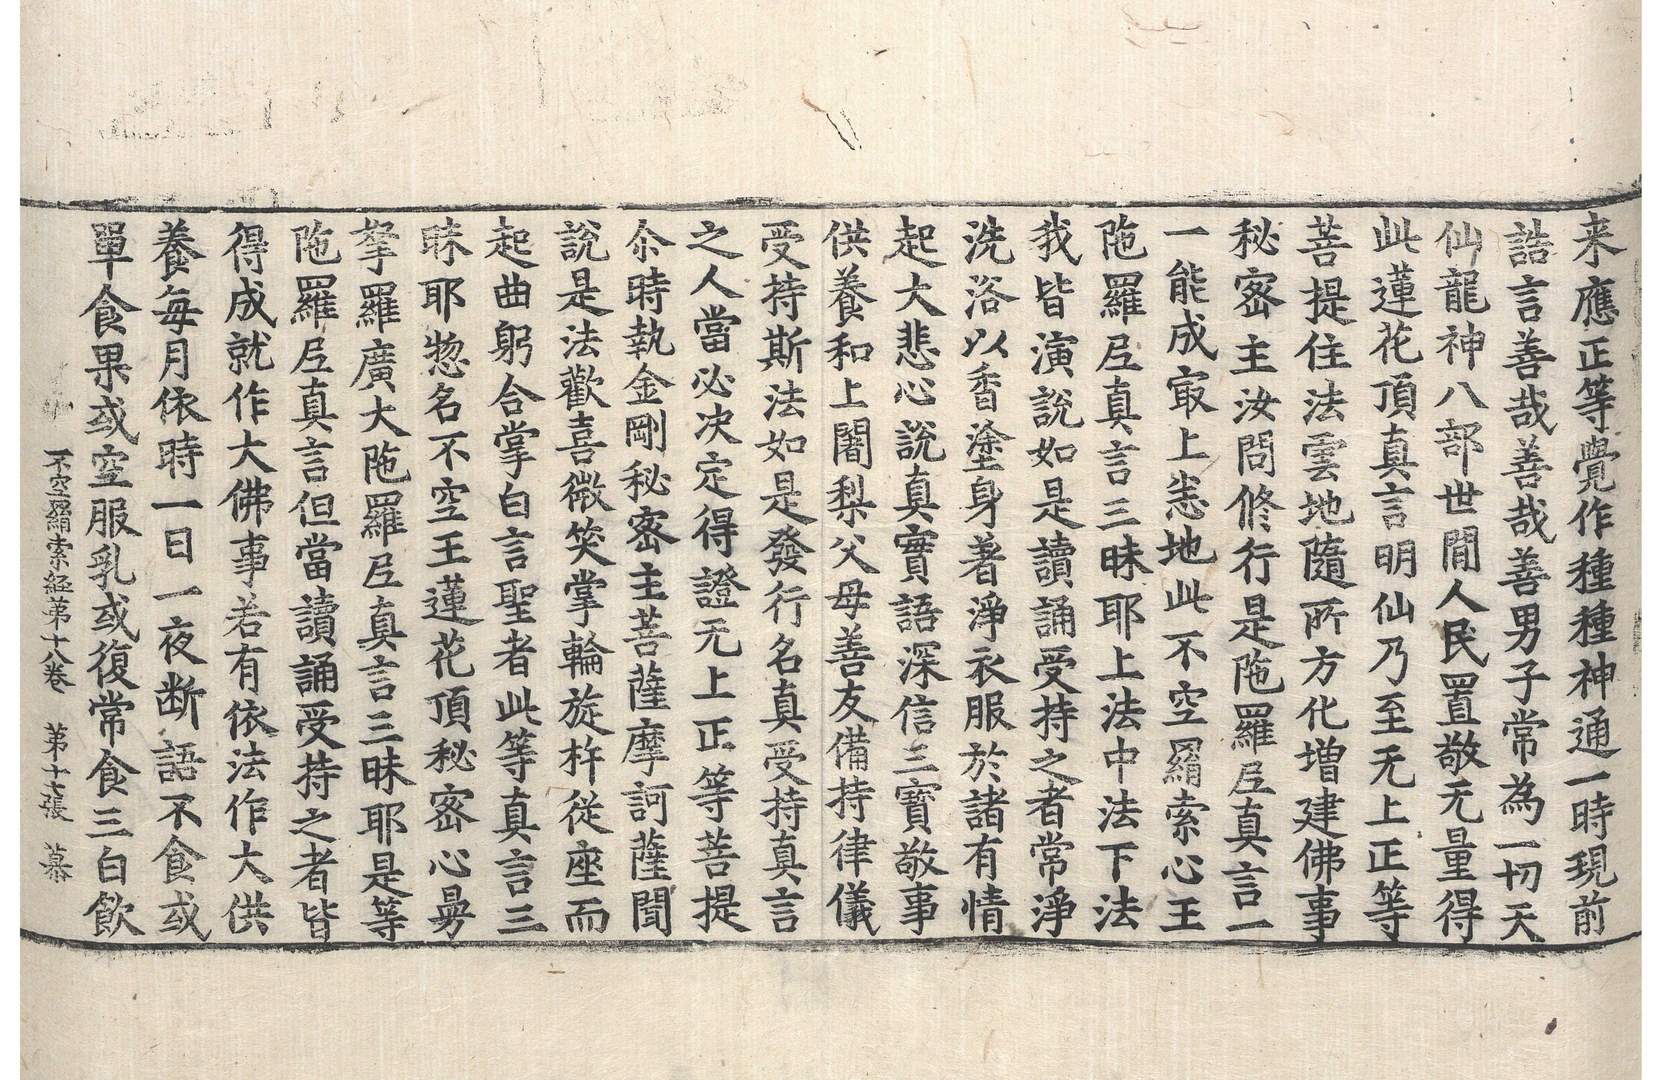 来應正等覺作種種神通一時現前
誥言善哉善哉善男子常為一切天
仙龍神八部世間人民置敬无量得
此蓮花頂真言明仙乃至无上正等
菩提住法雲地隨所方化增建佛事
秘密主汝問修行是陁羅𡰱真言一
一能成冣上悉地此不空羂索心王
陁羅𡰱真言三昧耶上法中法下法
我皆演說如是讀誦受持之者常淨
洗浴以香塗身著淨衣服於諸有情
起大悲心說真實語深信三寶敬事
供養和上闍梨父母善友備持律儀
受持斯法如是發行名真受持真言
之人當必決定得證无上正等菩提
尒時執金剛秘密主菩薩摩訶薩聞
說是法歡喜微笑掌輪旋杵從座而
起曲躬合掌白言聖者此等真言三
昧耶惣名不空王蓮花頂秘密心曼
拏羅廣大陁羅𡰱真言三昧耶是等
陁羅𡰱真言但當讀誦受持之者皆
得成就作大佛事若有依法作大供
養每月依時一日一夜断語不食或
單食果或空服乳或復常食三白飲
不空羂索経第十八卷　第十七張　慕